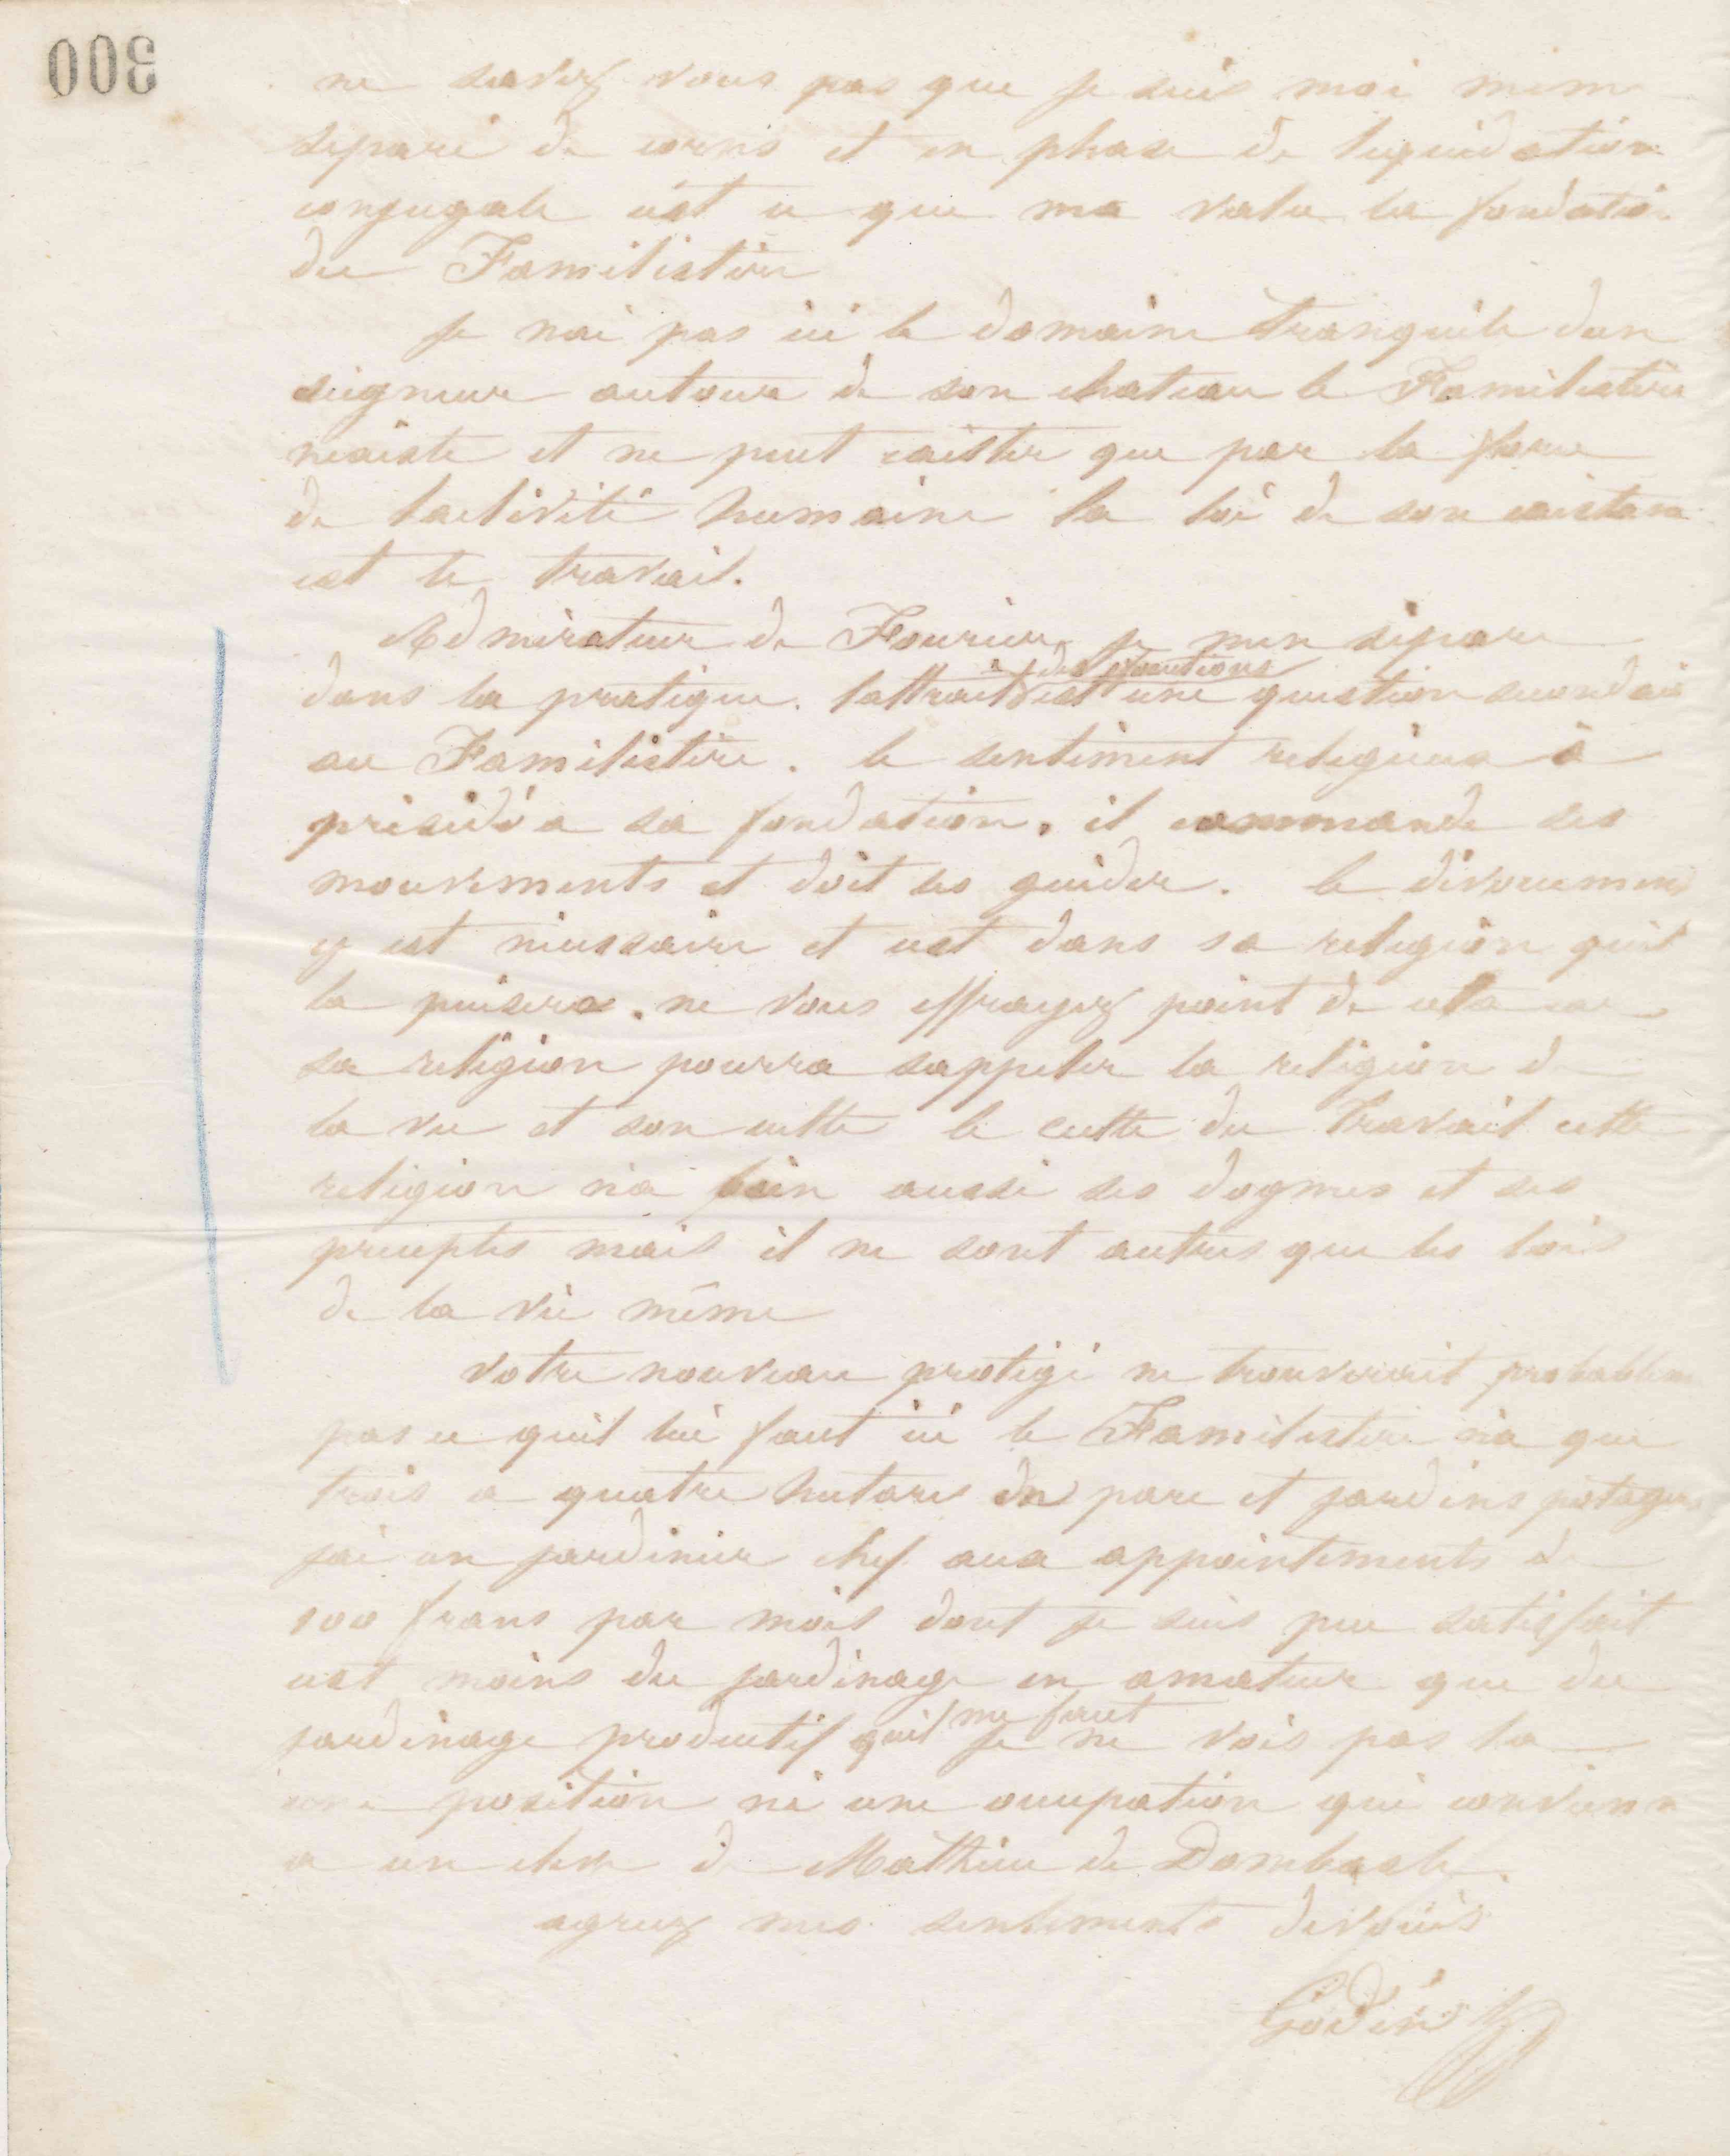 300
ne savez vous pas que je suis moi mem
séparé de corps et en phase de liquidation
conjugale cést ce que ma valu la fondation
du Familistère
Je nai pas ici le domaine tranquile dun
seigneur autour de son chateau le Familistère
nexiste et ne peut exister que par la force
de lactivité humaine la loi de son existance
est le travail.
Admirateur de Fourier, je men sépare
dans la pratique. lattrait des fonctions est une question secondai
au Familistère. le sentiment religieux à
présidé a sa fondation, il commande ses
mouvements et doit les guider. le dévouement
y est nécessaire et cest dans sa religion quil
la puisera. ne vous effrayez point de cela car
sa religion pourra sappeler la religion de
la vie et son culte le culte du travail cette
religion à bien aussi ses dogmes et ses
preceptes mais il ne sont autres que les lois
de la vie même
votre nouveau protégé ne trouverait probablem
pas ce quil lui faut ici le Familistère na que
trois a quatre hectares de parc et jardins potagers
jai un jardinier chef aux appointements de
100 frans par mois dont je suis peu satisfait
cest moins du jardinage en amateur que du
jardinage productif quil me faut je ne vois pas la
une position ni une occupation qui convienne
a un eleve de Mathieu de Dombasle.
agréez mes sentiments dévoués
Godin